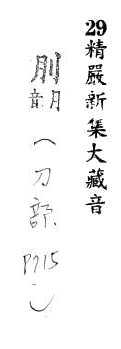 29精嚴新集大藏音
刖月音（刀部 P715）